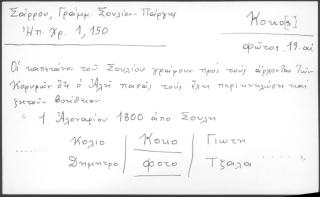 Σάρρου, Γράμμ. Σουλίου-Πάργης
Ἠπ. Χρ. 1, 150
Κοκο[ς]
φῶτος 19. αἰ
Οἱ καπετάνοι τοῦ Σουλίου γράφουν πρὸς τοὺς ἄρχοντας τῶν
Κορυφῶν ὅτι ὁ Ἀλῆ πασᾶς τοὺς ἔχει περικυκλώσει καὶ
ζητοῦν βοήθειαν.
" 1 Ἁλοναρίου 1800 ἀπο Σουλη
Κολιο | Κοκο | Γιωτη
...... Δημητρο | φοτο | Τζαλα ...... "